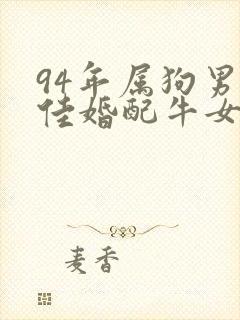 94年属狗男
佳婚配牛女
麦香